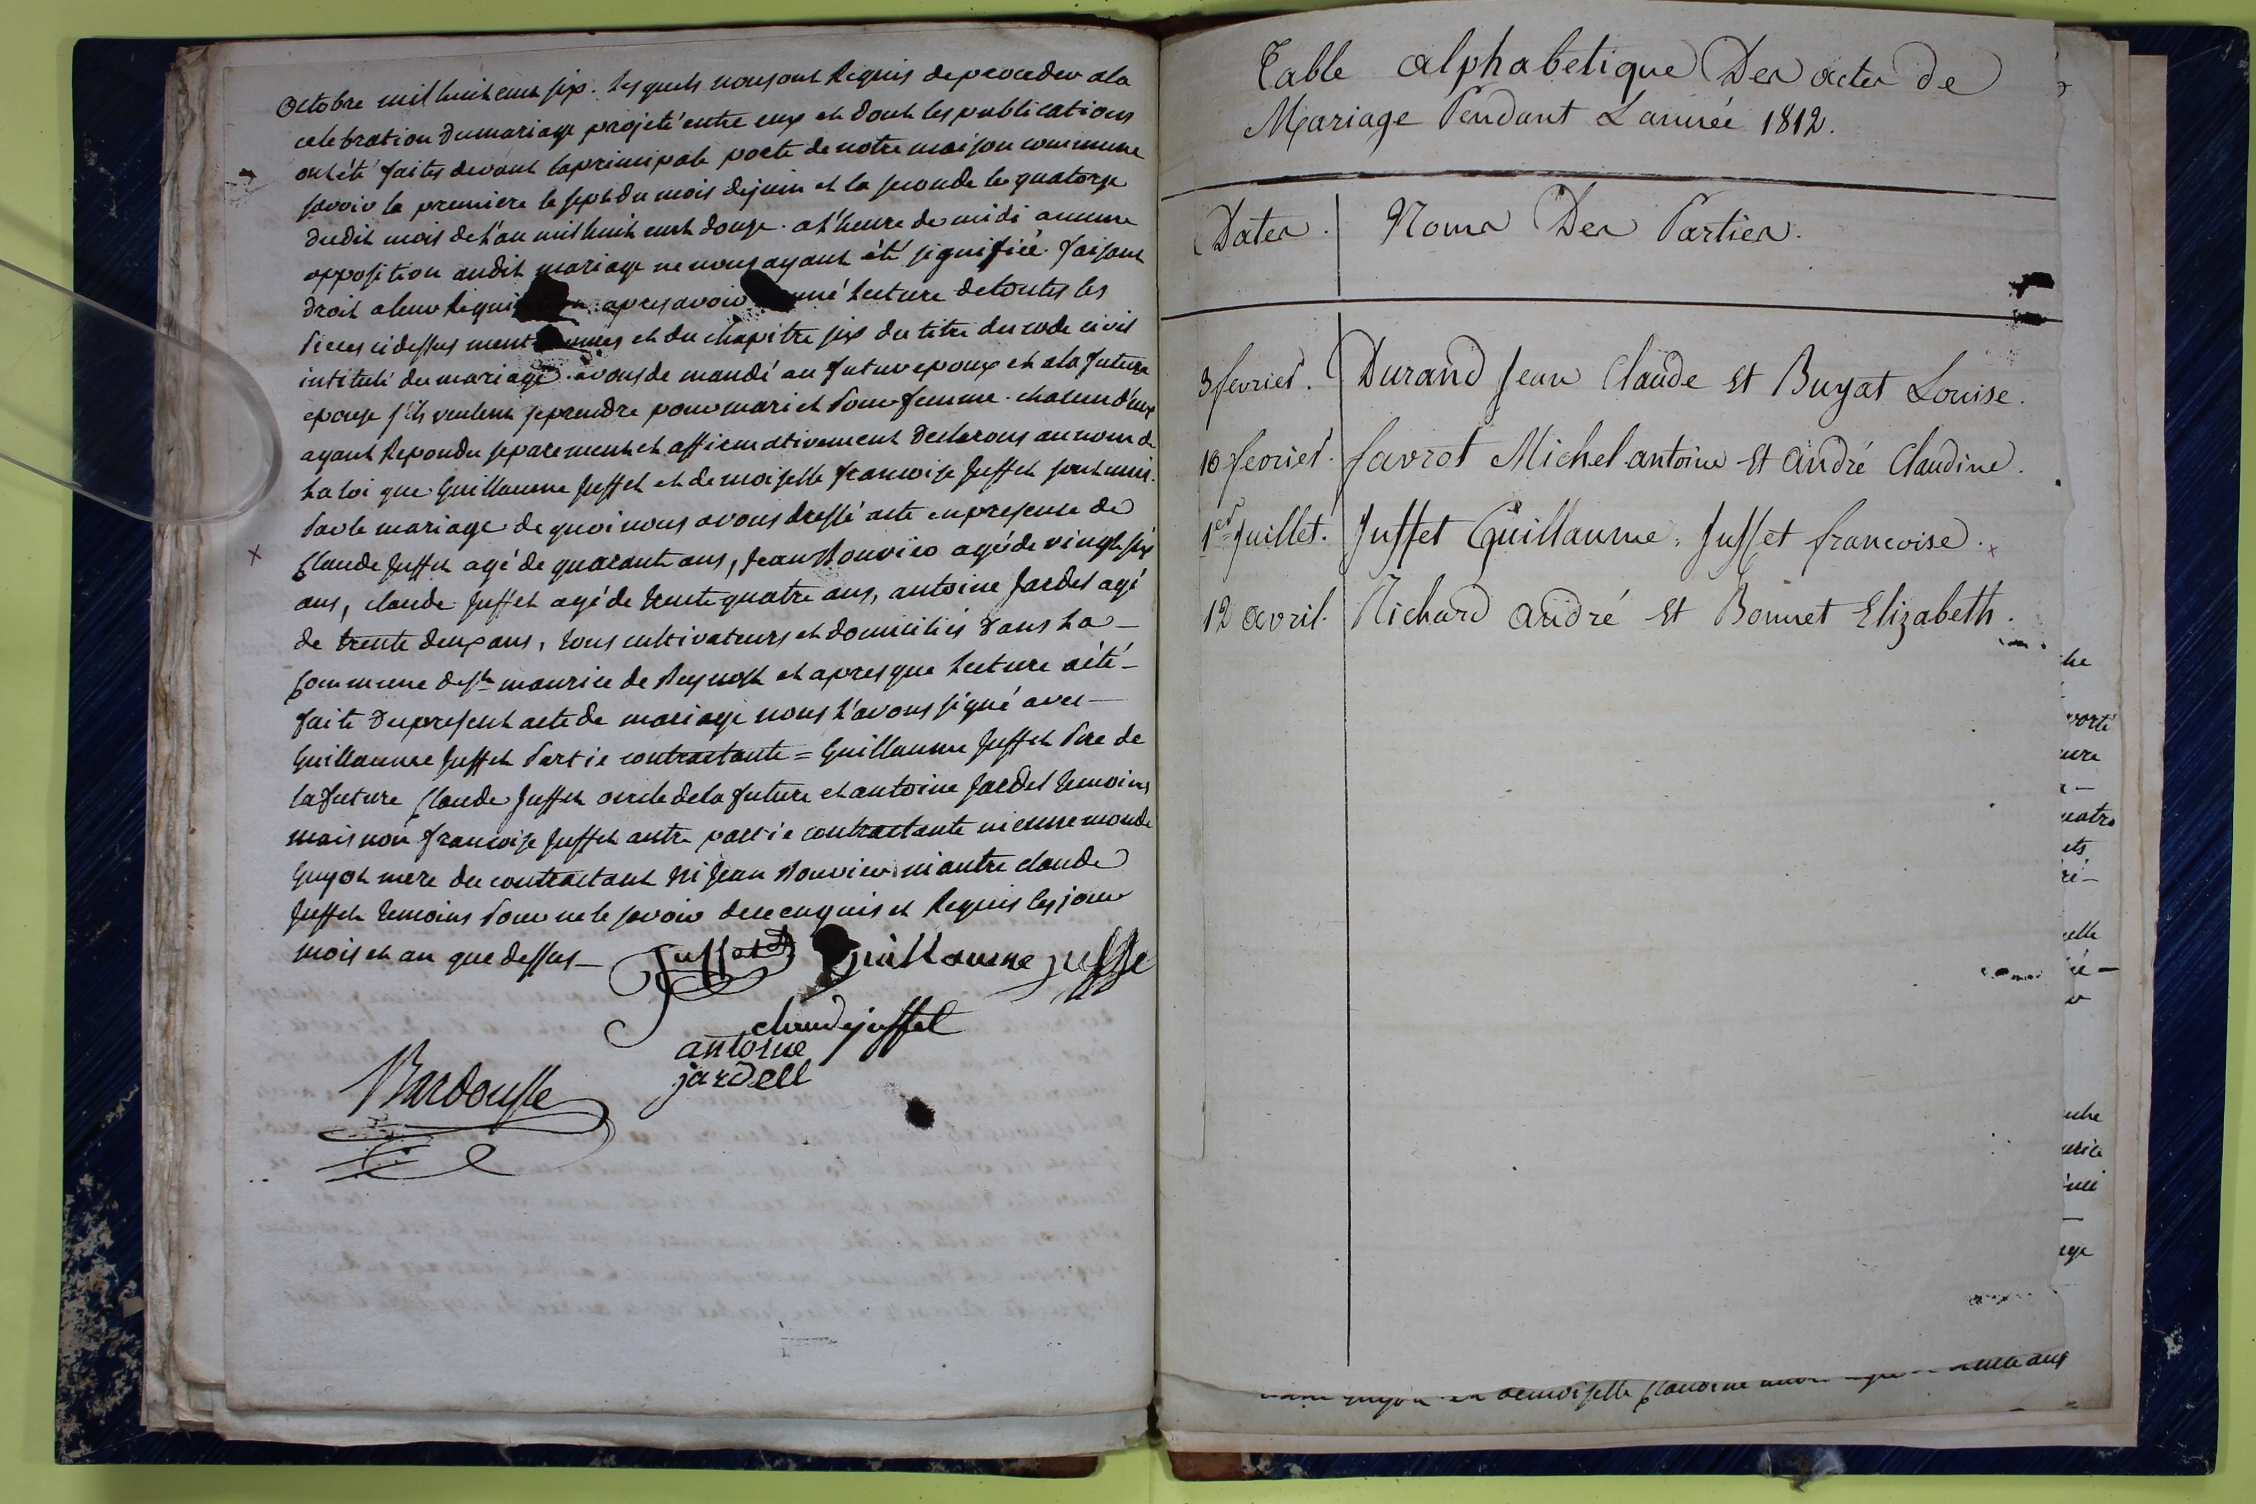 Octobre mil huit cent six. Lesquels nous ont Requis de proceder a la
celebration du mariage projeté entre eux et dont les publications
ont été faites devant la principale porte de notre maison commune
savoir la premiere le sept du mois de juin et la seconde le quatorze
dudit mois de l'an mil huit cent douze. a l'heure de midi aucune
opposition audit mariage ne nous ayant été signifiée. faisant
droit a leur apres avoir lecture de toutes les
Pieces ci dessus et du chapitre six du titre du code civil
intitulé du mariage. avons demandé au futur epoux et a la future
epouse s'ils veulent se prendre pour mari et Pour femme. chacun d'eux
ayant Repondu separement et affirmativement declarons au nom de
La loi que Guillaume Juffet et demoiselle francoise Juffet sont unis
Par le mariage de quoi nous avons dressé acte en presence de
Claude Juffet agé de quarante ans, Jean Bouvier agé de vingt six
ans, claude Juffet agé de trente quatre ans, antoine Jardel agé
de trente deux ans, tous cultivateurs et domiciliés Dans La —
Commune de St maurice de Beynost et apres que Lecture a été —
faite du present acte de mariage nous l'avons signé avec —
Guillaume Juffet Partie contractante = Guillaume Juffet Pere de
la future Claude Juffet oncle de la future et antoine Jardel temoins
mais non francoise Juffet autre partie contractante ni
Guyot mere du contractant Ni Jean Bouvier ni autre claude
Juffet temoins Pour ne le savoir de ce enquis et Requis les jour
mois et an que dessus —
Juffet Guillaume juffe
claude juffet
antoine
jardell
Bardousse
Table alphabetique Des actes de
Mariage Pendant L'année 1812.
Dates. Noms Des Parties.
3 fevrier. Durand Jean Claude et Buyat Louise.
10 fevrier. favrot Michel antoine et andré Claudine.
1er Juillet. Juffet Guillaume, Juffet francoise. x
12 avril. Richard andré et Bonnet Elizabeth.
demoiselle Claudine